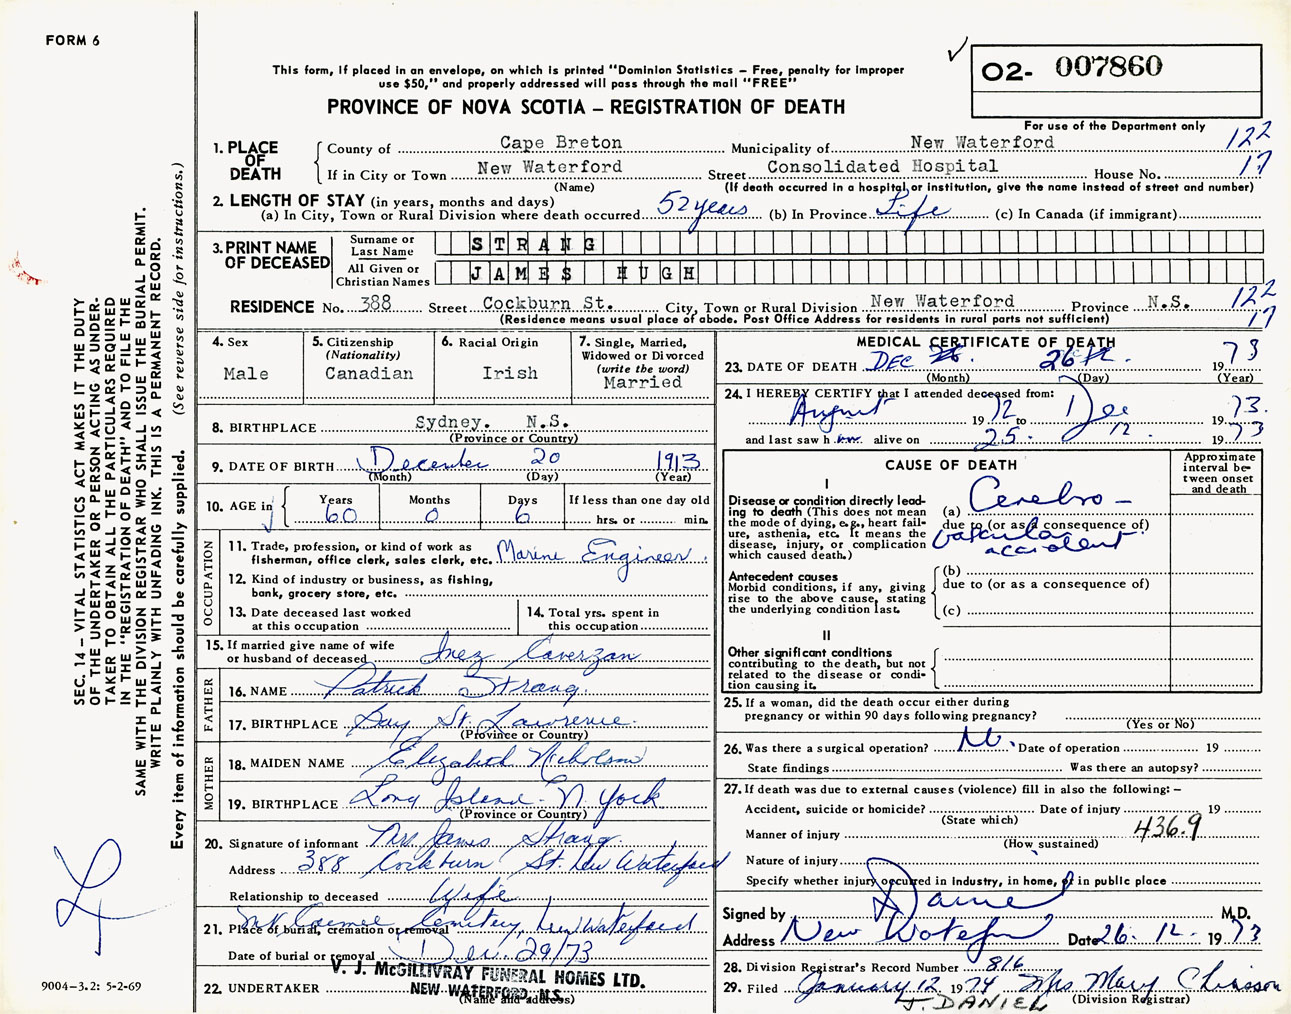 FORM 6
This form, if placed in an envelope, on which is printed "Dominion Statistics – Free, penalty for improper
use $50," and properly addressed will pass through the mail "FREE"
PROVINCE OF NOVA SCOTIA – REGISTRATION OF DEATH
02- 007860
For use of the Department only
1. PLACE OF DEATH
County of Cape Breton Municipality of New Waterford 122
If in City or Town New Waterford Street Consolidated Hospital House No. 17
(Name) (If death occurred in a hospital or institution, give the name instead of street and number)
2. LENGTH OF STAY (in years, months and days)
(a) In City, Town or Rural Division where death occurred 52 years (b) In Province Life (c) In Canada (if immigrant)
3. PRINT NAME OF DECEASED
Surname or Last Name STRANG
All Given or Christian Names JAMES HUGH
RESIDENCE No. 388 Street Cockburn St. City, Town or Rural Division New Waterford Province N.S. 122
(Residence means usual place of abode. Post Office Address for residents in rural parts not sufficient) 17
4. Sex
Male
5. Citizenship
(Nationality)
Canadian
6. Racial Origin
Irish
7. Single, Married,
Widowed or Divorced
(write the word)
Married
8. BIRTHPLACE Sydney. N.S.
(Province or Country)
9. DATE OF BIRTH December 20 1913
(Month) (Day) (Year)
10. AGE in Years 60 Months 0 Days 6 If less than one day old
hrs. or min.
OCCUPATION
11. Trade, profession, or kind of work as
fisherman, office clerk, sales clerk, etc. Marine Engineer.
12. Kind of industry or business, as fishing,
bank, grocery store, etc.
13. Date deceased last worked
at this occupation
14. Total yrs. spent in
this occupation
15. If married give name of wife
or husband of deceased Inez Caverzan
FATHER
16. NAME Patrick Strang.
17. BIRTHPLACE Bay St. Lawrence.
(Province or Country)
MOTHER
18. MAIDEN NAME Elizabeth Nicholson
19. BIRTHPLACE Long Island - N. York
(Province or Country)
20. Signature of informant Mrs James Strang.
Address 388 Cockburn St. New Waterford
Relationship to deceased Wife
21. Place of burial, cremation or removal Mt Carmel Cemetery, New Waterford
Date of burial or removal Dec. 29/73
22. UNDERTAKER V. J. McGILLIVRAY FUNERAL HOMES LTD.
NEW WATERFORD, N.S.
(Name and address)
MEDICAL CERTIFICATE OF DEATH
23. DATE OF DEATH DEC 26 1973
(Month) (Day) (Year)
24. I HEREBY CERTIFY that I attended deceased from:
August 1972 to Dec 1973.
and last saw h alive on 25. 12. 1973
CAUSE OF DEATH
Approximate
interval be-
tween onset
and death
I
Disease or condition directly lead-
ing to death (This does not mean
the mode of dying, e.g., heart fail-
ure, asthenia, etc. It means the
disease, injury, or complication
which caused death.)
(a) Cerebro-
due to (or as a consequence of)
vascular
accident
Antecedent causes
Morbid conditions, if any, giving
rise to the above cause, stating
the underlying condition last.
(b)
due to (or as a consequence of)
(c)
II
Other significant conditions
contributing to the death, but not
related to the disease or condi-
tion causing it.
25. If a woman, did the death occur either during
pregnancy or within 90 days following pregnancy?
(Yes or No)
26. Was there a surgical operation? No. Date of operation 19
State findings Was there an autopsy?
27. If death was due to external causes (violence) fill in also the following:–
Accident, suicide or homicide? Date of injury 19
(State which)
Manner of injury 436.9
(How sustained)
Nature of injury
Specify whether injury occurred in industry, in home, or in public place
Signed by M.D.
Address New Waterford Date 26. 12. 1973
28. Division Registrar's Record Number 816
29. Filed January 12 1974 Mrs Mary Chiasson
(Division Registrar)
J. DANIEL
SEC. 14 – VITAL STATISTICS ACT MAKES IT THE DUTY
OF THE UNDERTAKER OR PERSON ACTING AS UNDER-
TAKER TO OBTAIN ALL THE PARTICULARS REQUIRED
IN THE "REGISTRATION OF DEATH" AND TO FILE THE
SAME WITH THE DIVISION REGISTRAR WHO SHALL ISSUE THE BURIAL PERMIT.
WRITE PLAINLY WITH UNFADING INK. THIS IS A PERMANENT RECORD.
Every item of information should be carefully supplied. (See reverse side for instructions.)
9004-3.2: 5-2-69